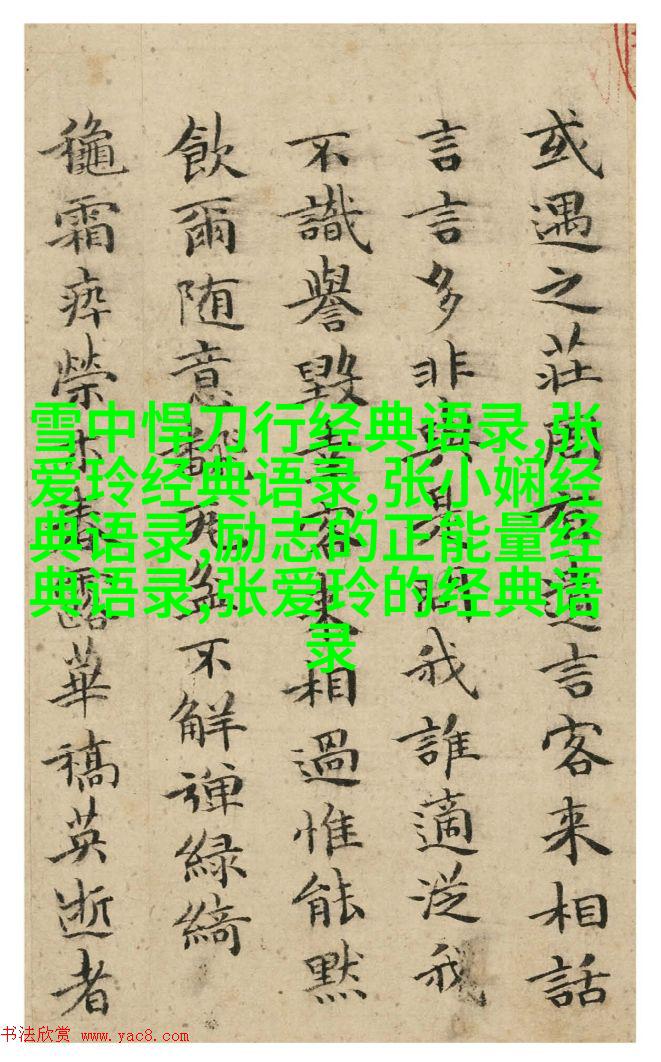 或遇之莊周有遺言客来相話
言言多非我誰適従我
不識譽毀客来相過惟能默
飲爾随意不觧弾緑綺
龝霜瘁榮木春露華稿英逝者
雪中悍刀行经典语录,张
爱玲经典语录,张小娴经
典语录,励志的正能量经
典语录,张爱玲的经典语
录
书法欣赏 www.yac8.com